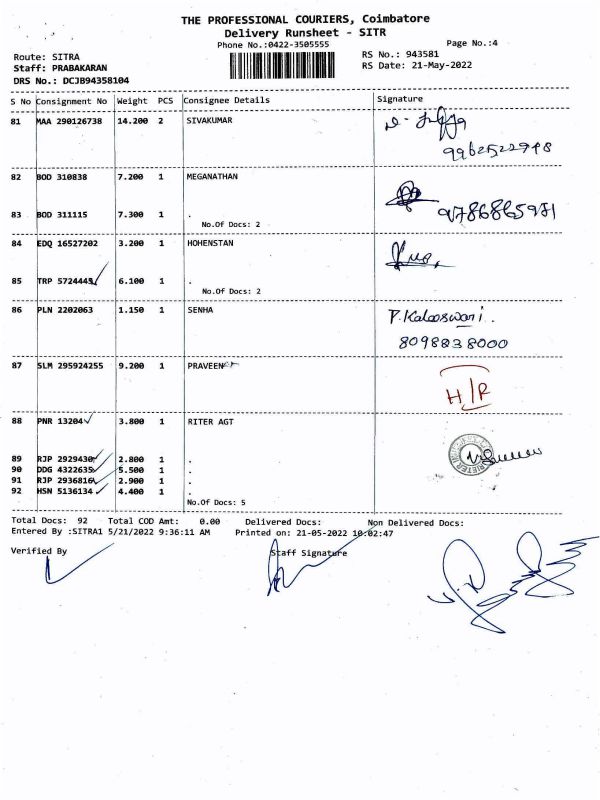 THE PROFESSIONAL COURIERS, Coimbatore
Delivery Runsheet - SITR
Phone No.:0422-3505555
Page No.:4
Route: SITRA
RS No.: 943581
Staff: PRABAKARAN
RS Date: 21-May-2022
DRS No.: DCJB94358104
S No Consignment No Weight PCS Consignee Details Signature
81 MAA 290126738 14.200 2 SIVAKUMAR
82 BOD 310838 7.200 1 MEGANATHAN
9786865971
83 BOD 311115 7.300 1 .
No.Of Docs: 2
84 EDQ 16527202 3.200 1 HOHENSTAN
85 TRP 5724445 6.100 1 .
No.Of Docs: 2
86 PLN 2202063 1.150 1 SENHA P.Kalaeswari.
8098838000
87 SLM 295924255 9.200 1 PRAVEEN
H/R
88 PNR 13204 3.800 1 RITER AGT
89 RJP 2929430 2.800 1 .
90 DDG 4322635 5.500 1 .
91 RJP 2936816 2.900 1 .
92 HSN 5136134 4.400 1 .
No.Of Docs: 5
Total Docs: 92 Total COD Amt: 0.00 Delivered Docs: Non Delivered Docs:
Entered By :SITRA1 5/21/2022 9:36:11 AM Printed on: 21-05-2022 10:02:47
Verified By Staff Signature